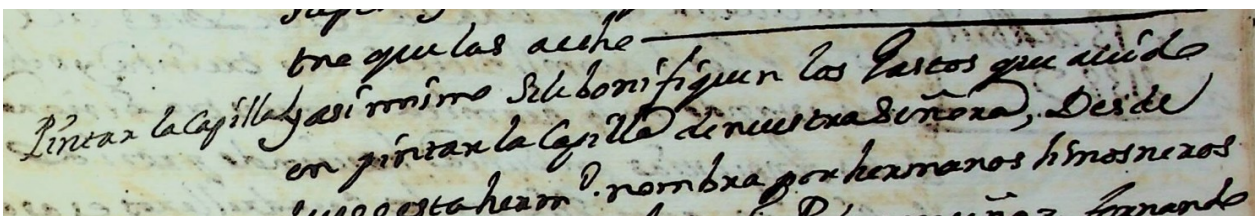 tne que las
Pintar la Capilla
y asimismo Se le bonifiquen los Gastos que
en pintar la Capilla de nuestra Señora, Desde
luego esta herm.d nombra por hermanos limosneros
Fernando